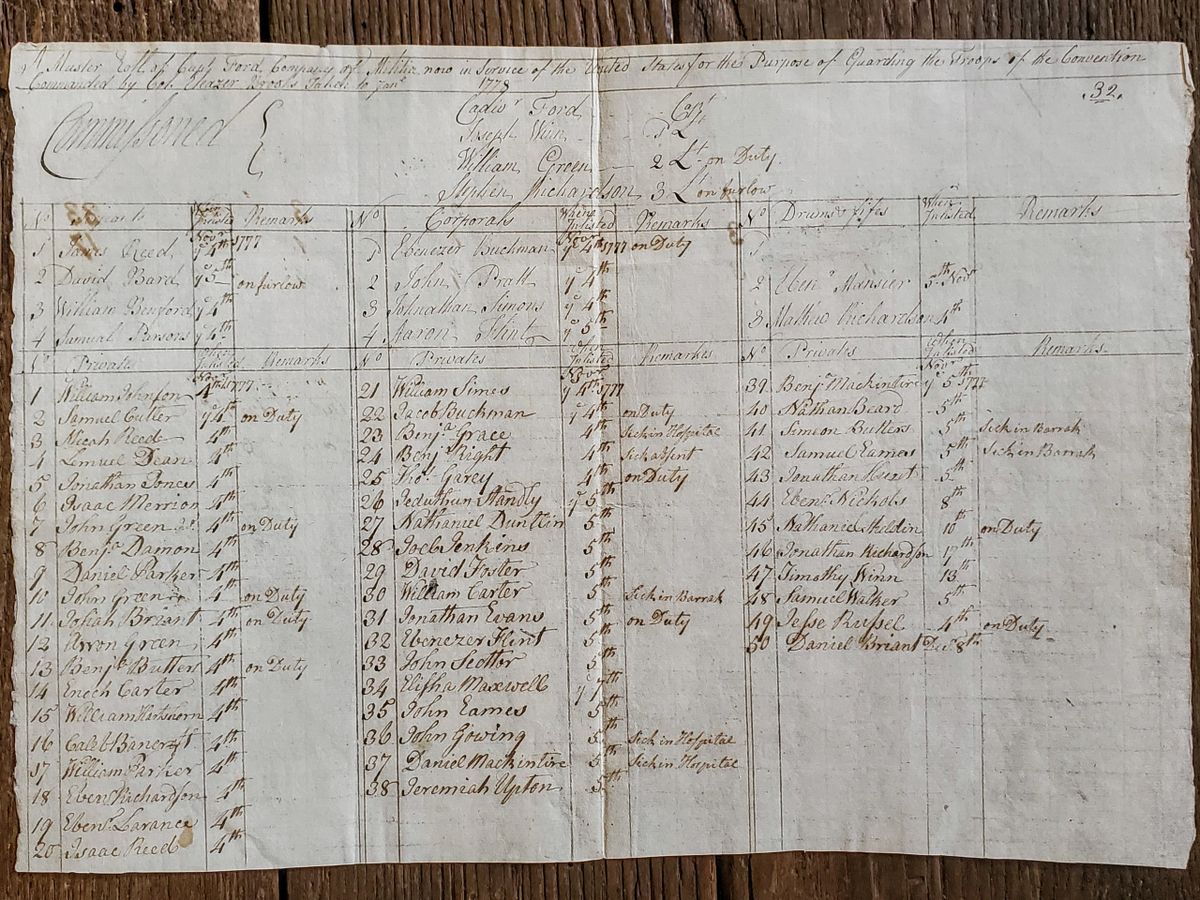 A Muster Roll of Capt Ford Company of Militia now in Service of the United States for the Purpose of Guarding the Troops of the Convention
Commanded by Col. Eleazer Brooks Taken to Jan.y 1778
.32.
Commissioned
Cadwr Ford Capt
Joseph Winn 1 Lt
William Green 2 Lt on Duty
Stephen Richardson 3 Lt on furlow
No When Inlisted Remarks No Corporals When Inlisted Remarks No Drums & fifes When Inlisted Remarks
1 James Reed Novr ye 4th 1777 1 Ebenezer Buckman Novr ye 4th 1777 on Duty 1
2 David Bard ye 5th on furlow 2 John Pratt ye 4th 2 Ebenr Mansier 5th Novr
3 William Benford ye 4th 3 Johnathan Simons ye 4th 3 Mathew Richardson 4th
4 Samuel Parsons ye 4th 4 Aaron Flint ye 5th
No Privates When Inlisted Remarks No Privates When Inlisted Remarks No Privates When Inlisted Remarks
1 William Johnson Novr 4th 1777 21 William Simes Novr ye 4th 1777 39 Benja Mackintire Novr ye 5th 1777
2 Samuel Cutler ye 4th on Duty 22 Jacob Buckman ye 4th on Duty 40 Nathan Beard 5th
3 Micah Reed 4th 23 Benja Grace 4th Sick in Hospital 41 Simeon Butters 5th Sick in Barrak
4 Lemuel Dean 4th 24 Benja Right 4th Sick absent 42 Samuel Eames 5th Sick in Barrak
5 Jonathan Jones 4th 25 Thos Garey 4th on Duty 43 Jonathan 5th
6 Isaac Merrion 4th 26 Jeduthun Standly ye 5th 44 Ebenr Nichols 8th
7 John Green 4th on Duty 27 Nathaniel Dunttin 5th 45 Nathaniel Sheldin 10th on Duty
8 Benja Damon 4th 28 Joel Jenkins 5th 46 Jonathan Richardson 17th
9 Daniel Parker 4th 29 David Foster 5th 47 Timothy Winn 13th
10 John Green 4th on Duty 30 William Carter 5th Sick in Barrak 48 Samuel Walker 5th
11 Josiah Breant 4th on Duty 31 Jonathan Evans 5th on Duty 49 Jesse Russel 4th on Duty
12 Arron Green 4th 32 Ebenezer Flint 5th 50 Daniel Briant Decr 8th
13 Benja Butters 4th on Duty 33 John 5th
14 Enoch Carter 4th 34 Elisha Maxwell ye 7th
15 William Hartshorn 4th 35 John Eames 5th
16 Caleb Bancroft 4th 36 John Gowing 5th Sick in Hospital
17 William Parker 4th 37 Daniel Mackintire 5th Sick in Hospital
18 Ebenr Richardson 4th 38 Jeremiah Upton 5th
19 Ebenr Larance 4th
20 Isaac Reed 4th